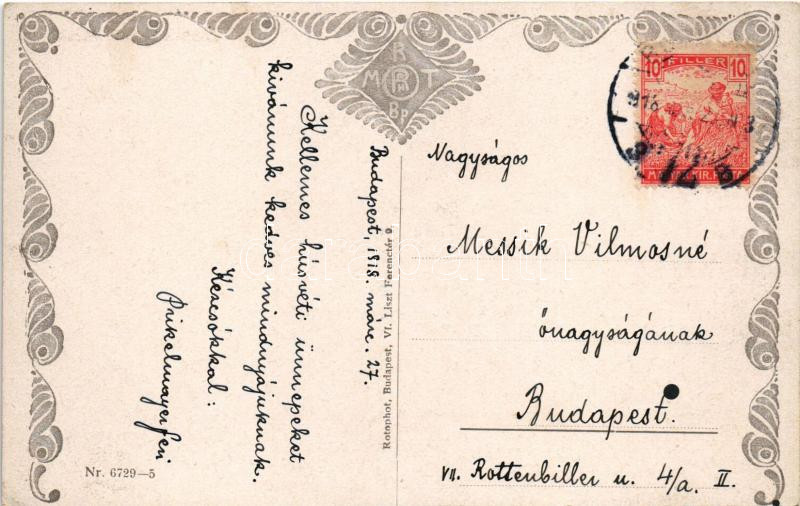 Budapest, 1918. márc. 27.
Kellemes húsvéti ünnepeket
kivánunk kedves mindnyájuknak.
Kézcsókkal:
Prikelmayer feri
R
M R T
Bp
10 FILLER 10
MAGYAR KIR. POSTA
Nagyságos
Messik Vilmosné
őnagyságának
Budapest.
VII. Rottenbiller u. 4/a. II.
Rotophot, Budapest, VI. Liszt Ferenctér 9.
Nr. 6729—5